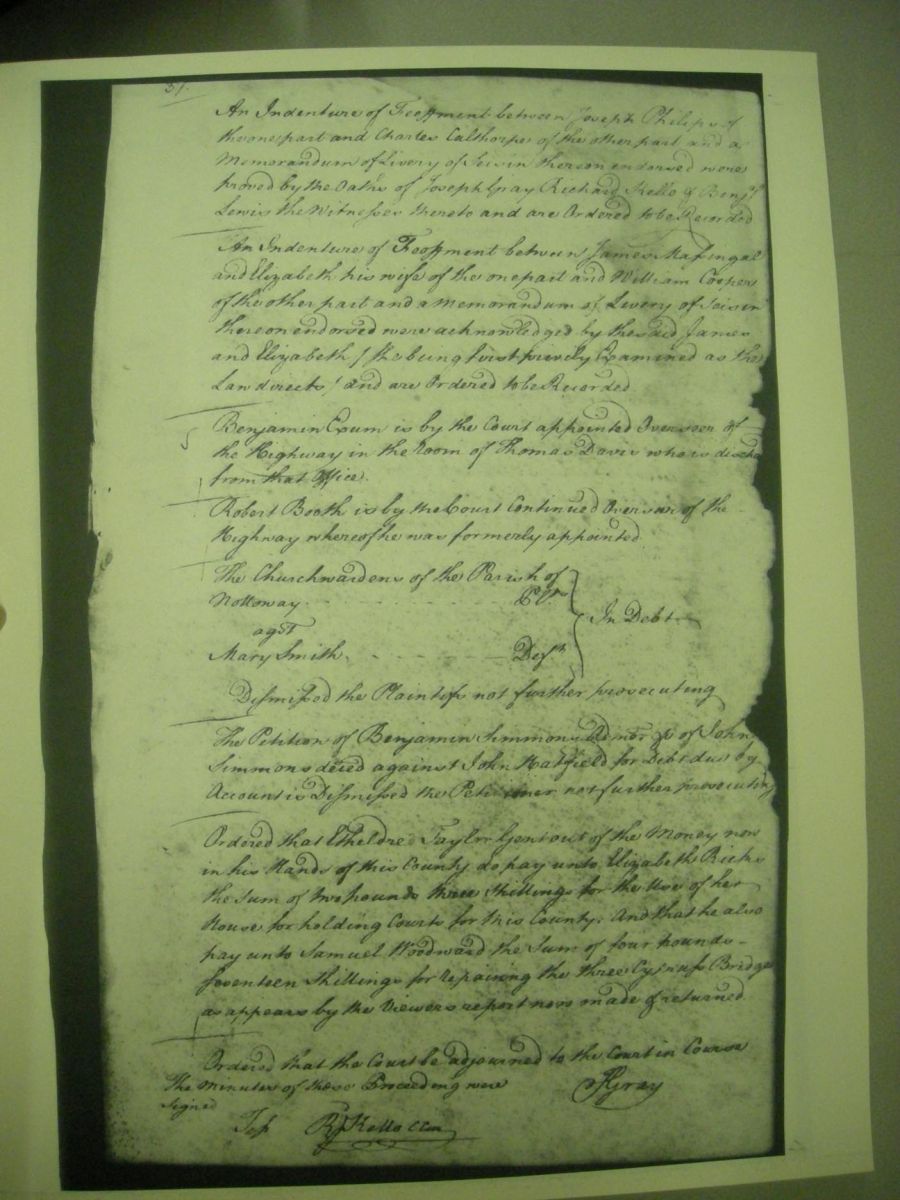 51.
An Indenture of Feoffment between Joseph Philips of
the one part and Charles Calthorpe of the other part and a
Memorandum of Livery of Seisin thereon endorsed were
proved by the Oaths of Joseph Gray Richard Kello & Benjª
Lewis the Witnesses thereto and are Ordered to be Recorded
An Indenture of Feoffment between James
and Elizabeth his wife of the one part and William Cooper
of the other part and a Memorandum of Livery of Seisin
thereon endorsed were acknowledged by the said James
and Elizabeth / she being first privily Examined as the
Law directs / and are Ordered to be Recorded
Benjamin Exum is by the Court appointed Overseer of
the Highway in the Room of Thomas Davis who is discha
from that Office.
Robert Booth is by the Court Continued Overseer of the
Highway whereof he was formerly appointed
The Churchwardens of the Parish of
Nottoway Plts
agst In Debt
Mary Smith Deft
Dismissed the Plaintifs not further prosecuting
The Petition of Benjamin Simmons Admor &c of John
Simmons deced against John Hatfield for Debt due by
Account is Dismissed the Petitioner not further prosecuting
Ordered that Etheldred Taylor Gent out of the Money now
in his Hands of this County do pay unto Elizabeth Ricks
the Sum of two pounds three Shillings for the Use of her
House for holding Courts for this County. And that he also
pay unto Samuel Woodward the Sum of four pounds
Seventeen Shillings for repairing the Three Cypress Bridge
as appears by the Viewers report now made & returned
Ordered that the Court be adjourned to the Court in Course
The Minutes of these Proceeding were JGray
Signed
Test RdKello CCur